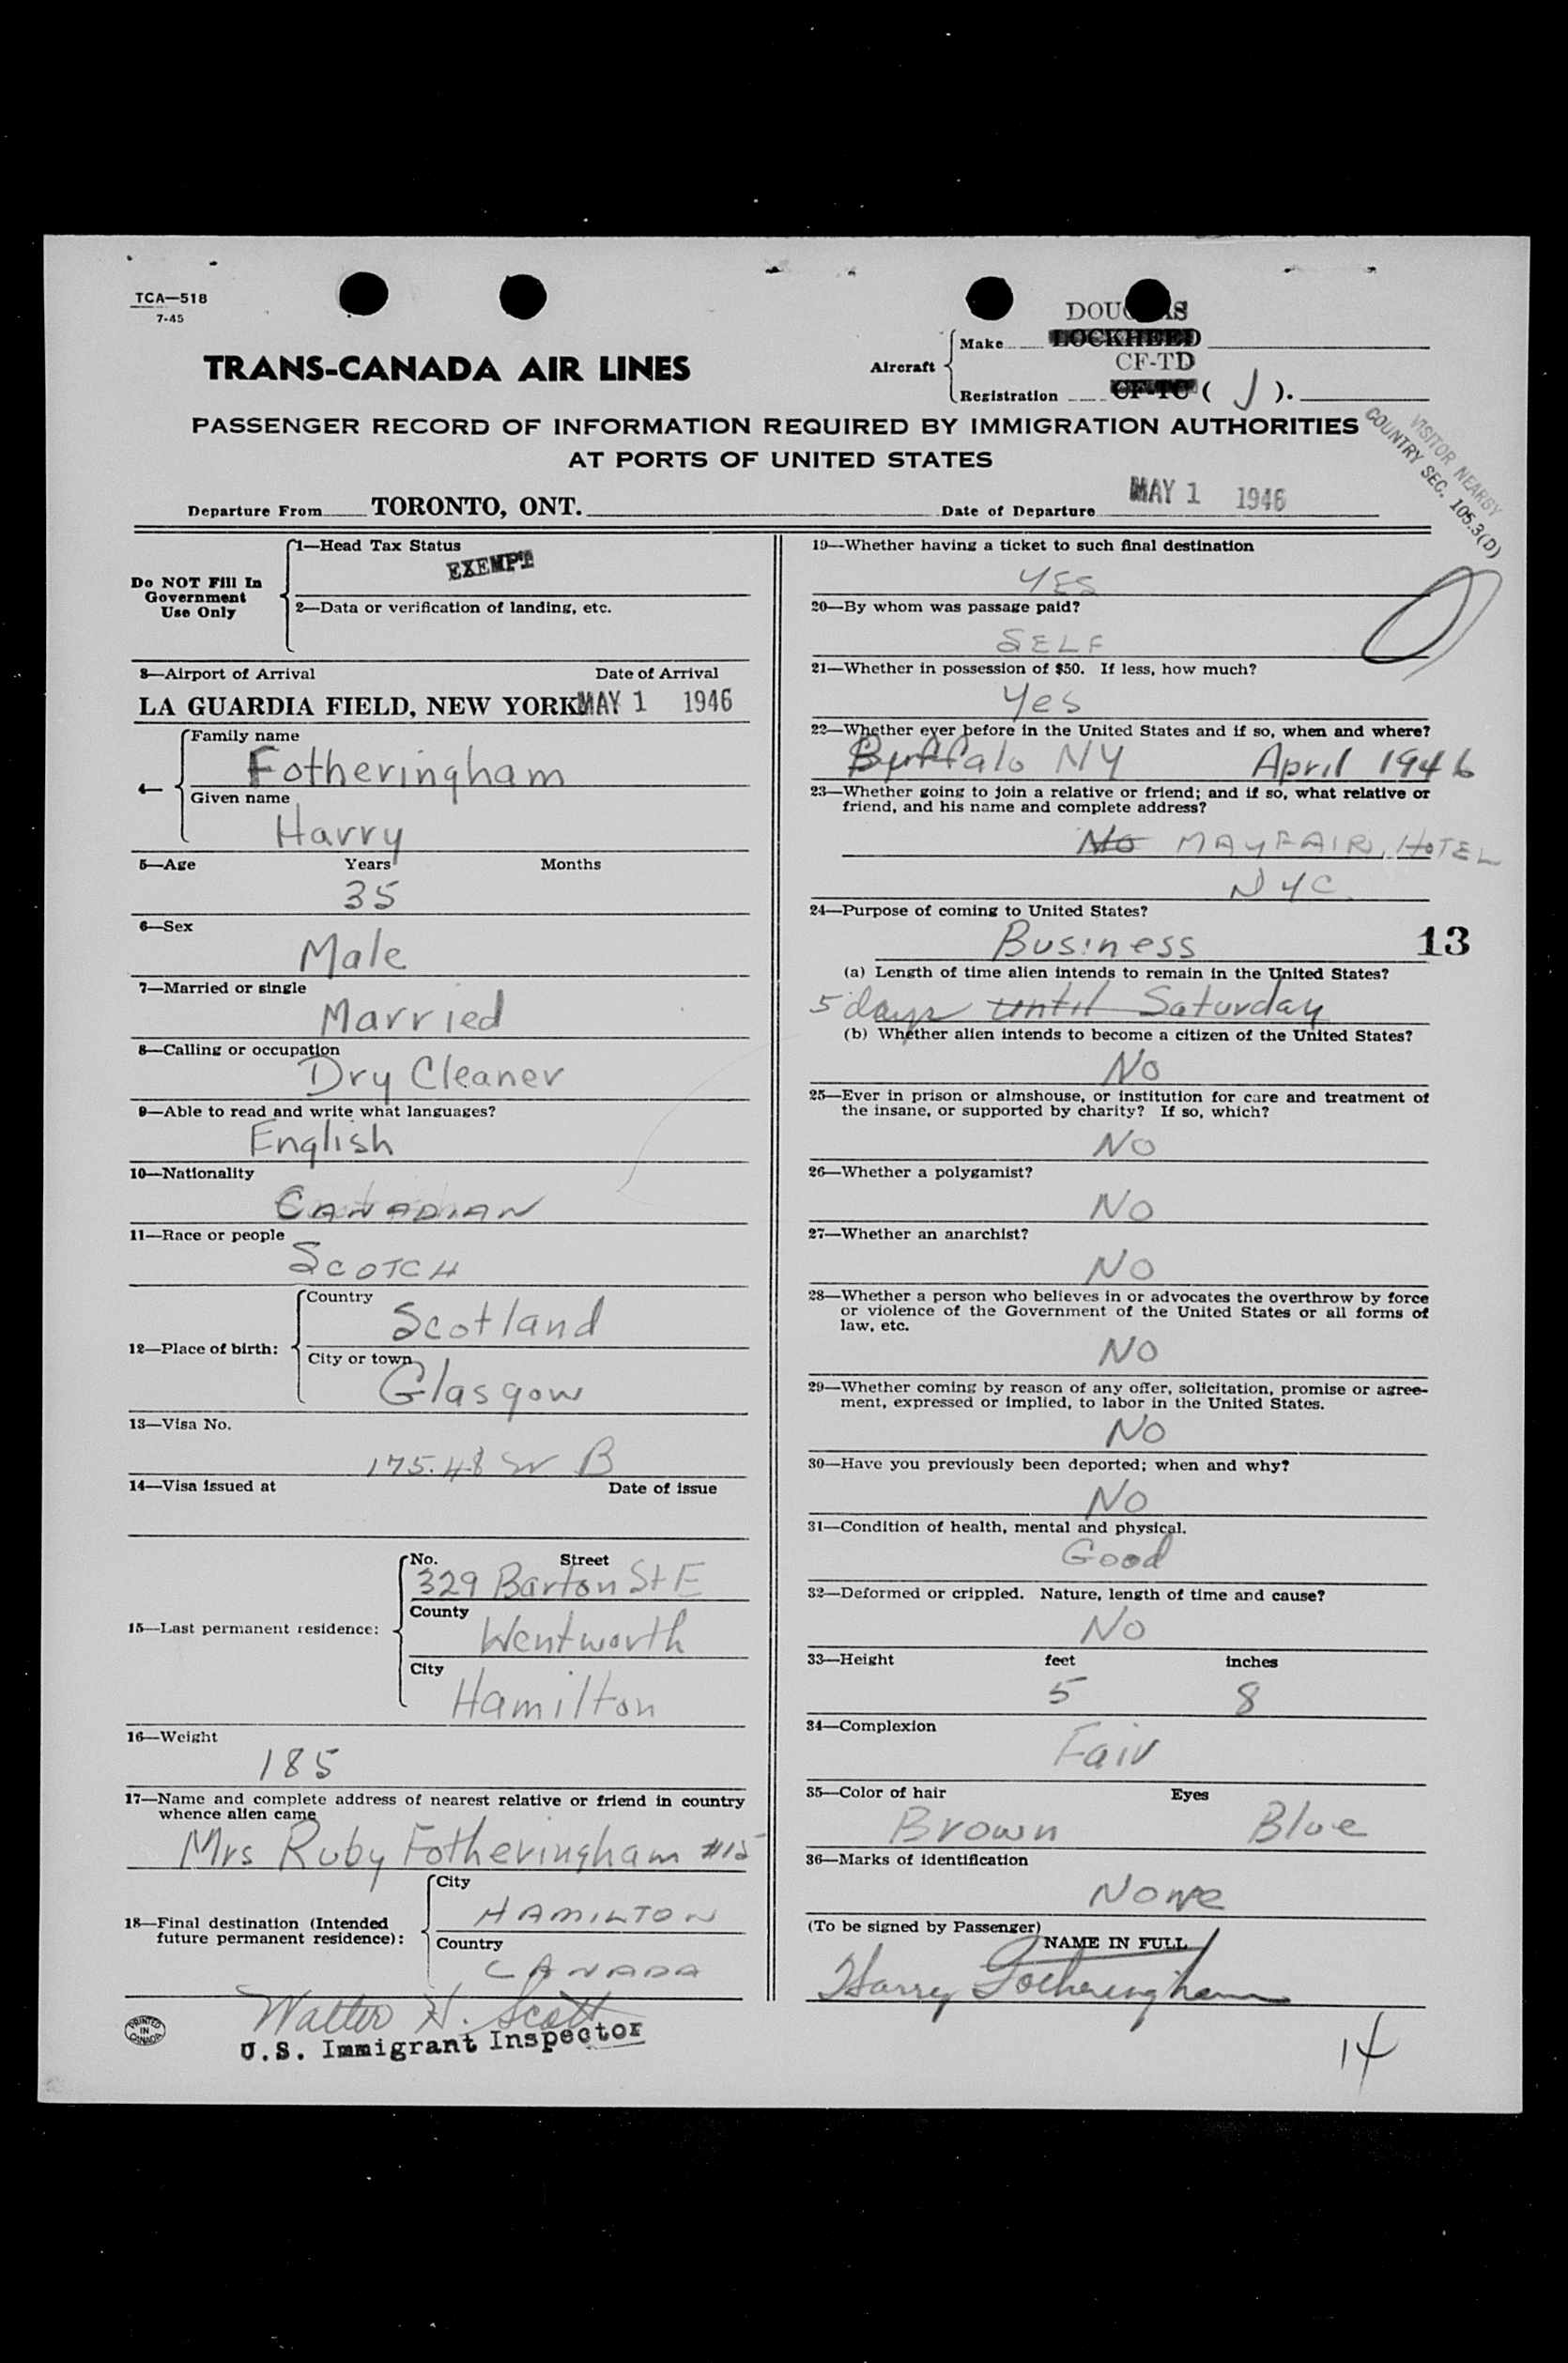 TCA—518
7-45
DOUGLAS
Aircraft
Make LOCKHEED
CF-TD
Registration CF-TC ( J ).
TRANS-CANADA AIR LINES
PASSENGER RECORD OF INFORMATION REQUIRED BY IMMIGRATION AUTHORITIES
AT PORTS OF UNITED STATES
VISITOR NEARBY
COUNTRY SEC. 105.3(D)
Departure From TORONTO, ONT. Date of Departure MAY 1 1946
Do NOT Fill In
Government
Use Only
1—Head Tax Status
EXEMPT
2—Data or verification of landing, etc.
3—Airport of Arrival Date of Arrival
LA GUARDIA FIELD, NEW YORK MAY 1 1946
4—
Family name
Fotheringham
Given name
Harry
5—Age Years Months
35
6—Sex
Male
7—Married or single
Married
8—Calling or occupation
Dry Cleaner
9—Able to read and write what languages?
English
10—Nationality
CANADIAN
11—Race or people
SCOTCH
12—Place of birth:
Country
Scotland
City or town
Glasgow
13—Visa No.
175.48 B
14—Visa issued at Date of issue
15—Last permanent residence:
No. Street
329 Barton St E
County
Wentworth
City
Hamilton
16—Weight
185
17—Name and complete address of nearest relative or friend in country
whence alien came
Mrs Ruby Fotheringham #15
18—Final destination (Intended
future permanent residence):
City
HAMILTON
Country
CANADA
Walter H. Scott
U.S. Immigrant Inspector
PRINTED
IN
CANADA
19—Whether having a ticket to such final destination
YES
20—By whom was passage paid?
SELF
21—Whether in possession of $50. If less, how much?
Yes
22—Whether ever before in the United States and if so, when and where?
Buffalo NY April 1946
23—Whether going to join a relative or friend; and if so, what relative or
friend, and his name and complete address?
No MAYFAIR, HOTEL
NYC.
24—Purpose of coming to United States?
Business
13
(a) Length of time alien intends to remain in the United States?
5 days until Saturday
(b) Whether alien intends to become a citizen of the United States?
No
25—Ever in prison or almshouse, or institution for care and treatment of
the insane, or supported by charity? If so, which?
No
26—Whether a polygamist?
No
27—Whether an anarchist?
No
28—Whether a person who believes in or advocates the overthrow by force
or violence of the Government of the United States or all forms of
law, etc.
No
29—Whether coming by reason of any offer, solicitation, promise or agree-
ment, expressed or implied, to labor in the United States.
No
30—Have you previously been deported; when and why?
No
31—Condition of health, mental and physical.
Good
32—Deformed or crippled. Nature, length of time and cause?
No
33—Height feet inches
5 8
34—Complexion
Fair
35—Color of hair Eyes
Brown Blue
36—Marks of identification
None
(To be signed by Passenger)
NAME IN FULL
Harry Fotheringham
14